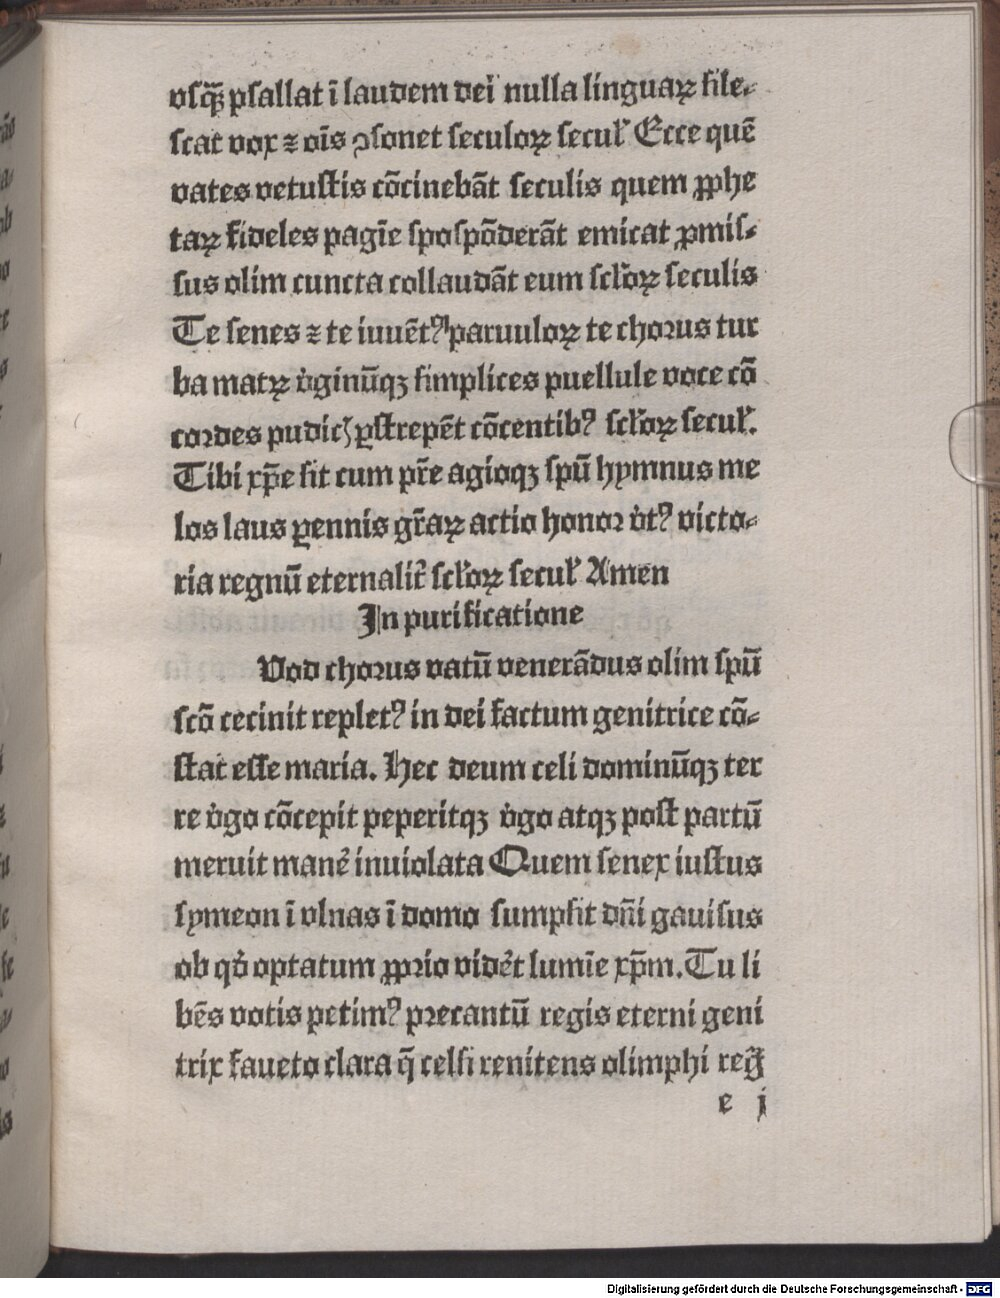 vsq̄ꝫ psallat ī laudem dei nulla linguaꝝ sile⸗
scat vox ⁊ oīs ꝯsonet seculoꝝ secul᷒ Ecce quē
vates vetustis cōcinebāt seculis quem ꝓphe
taꝝ fideles pagīe spospōderāt emicat ꝓmis⸗
sus olim cuncta collaudāt eum scl̓oꝝ seculis
Te senes ⁊ te iuuēt᷒ paruuloꝝ te choꝛus tur
ba matꝝ v̓ginūqꝫ simplices puellule voce cō
coꝛdes pudicꝭ ꝑstrepēt cōcentib᷒ scl̓oꝝ secul̓.
Tibi xp̄e sit cum pr̄e agioqꝫ spū hymnus me
los laus ꝑennis gr̄aꝝ actio honoꝛ v̓t᷒ victo⸗
ria regnū eternalit̓ scl̓oꝝ secul̓ Amen
In purificatione
Vod choꝛus vatū venerādus olim spū
scō cecinit replet᷒ in dei factum genitrice cō⸗
stat esse maria. Hec deum celi dominūqꝫ ter
re v̓go cōcepit peperitqꝫ v̓go atqꝫ post partū
meruit manē inuiolata Quem senex iustus
symeon ī vlnas ī domo sumpsit dn̄i gauisus
ob qd̓ optatum ꝓpꝛio vidēt lumīe xp̄m. Tu li
bēs votis petim᷒ pꝛecantū regis eterni geni
trix faueto clara q̄ celsi renitens olimphi reḡ
e j
Digitalisierung gefördert durch die Deutsche Forschungsgemeinschaft - DFG